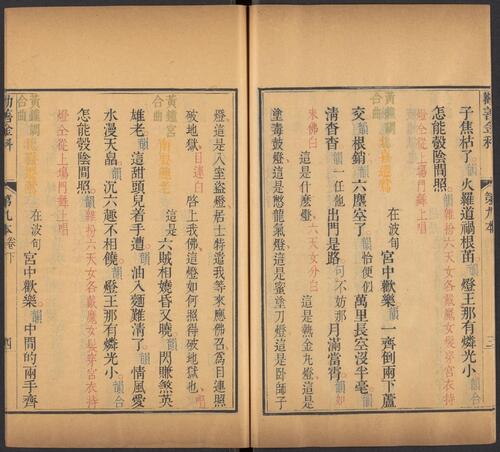 勸善金科 第九本卷 三
子焦枯了韻火羅道禍根苗韻燈王那有燐光小韻合
怎能彀陰間照韻雜扮六天女各戴魔女髮穿宮衣持
燈仝從上場門舞上唱
黃鐘調合曲 在波旬宮中歡樂韻一齊倒兩下蘆
交韻根銷韻六塵空了韻恰便似萬里長空沒半毫韻
清香杳韻一任他出門是路句可不妨那月滿當霄韻如
來佛白這是什麼燈六天女分白這是熱金丸燈
塗毒鼓燈這是龍氣燈這是蜜塗刀燈這是卧師子
燈這是入室盜燈居士特邀我等來應佛召為目連照
破地獄目連白啓上我佛這燈如何照得破地獄也唱
黃鐘宮合曲 這是六賊相嬈昏又曉韻閃賺煞英
雄老韻這甜頭兒着手遭韻油入麵難清了韻情風愛
水漫天韻沉六趣不相饒韻燈王那有燐光小韻合
怎能彀陰間照韻雜扮六天女各戴魔女髮穿宮衣持
燈仝從上場門舞上唱
黃鐘調合曲 在波旬宮中歡樂韻中間的兩手齊
勸善金科 第九本卷下 四